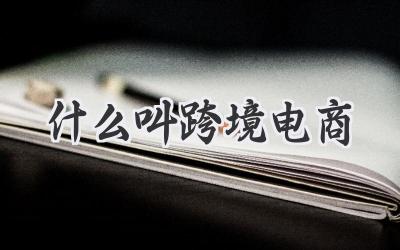 什么叫跨境电商